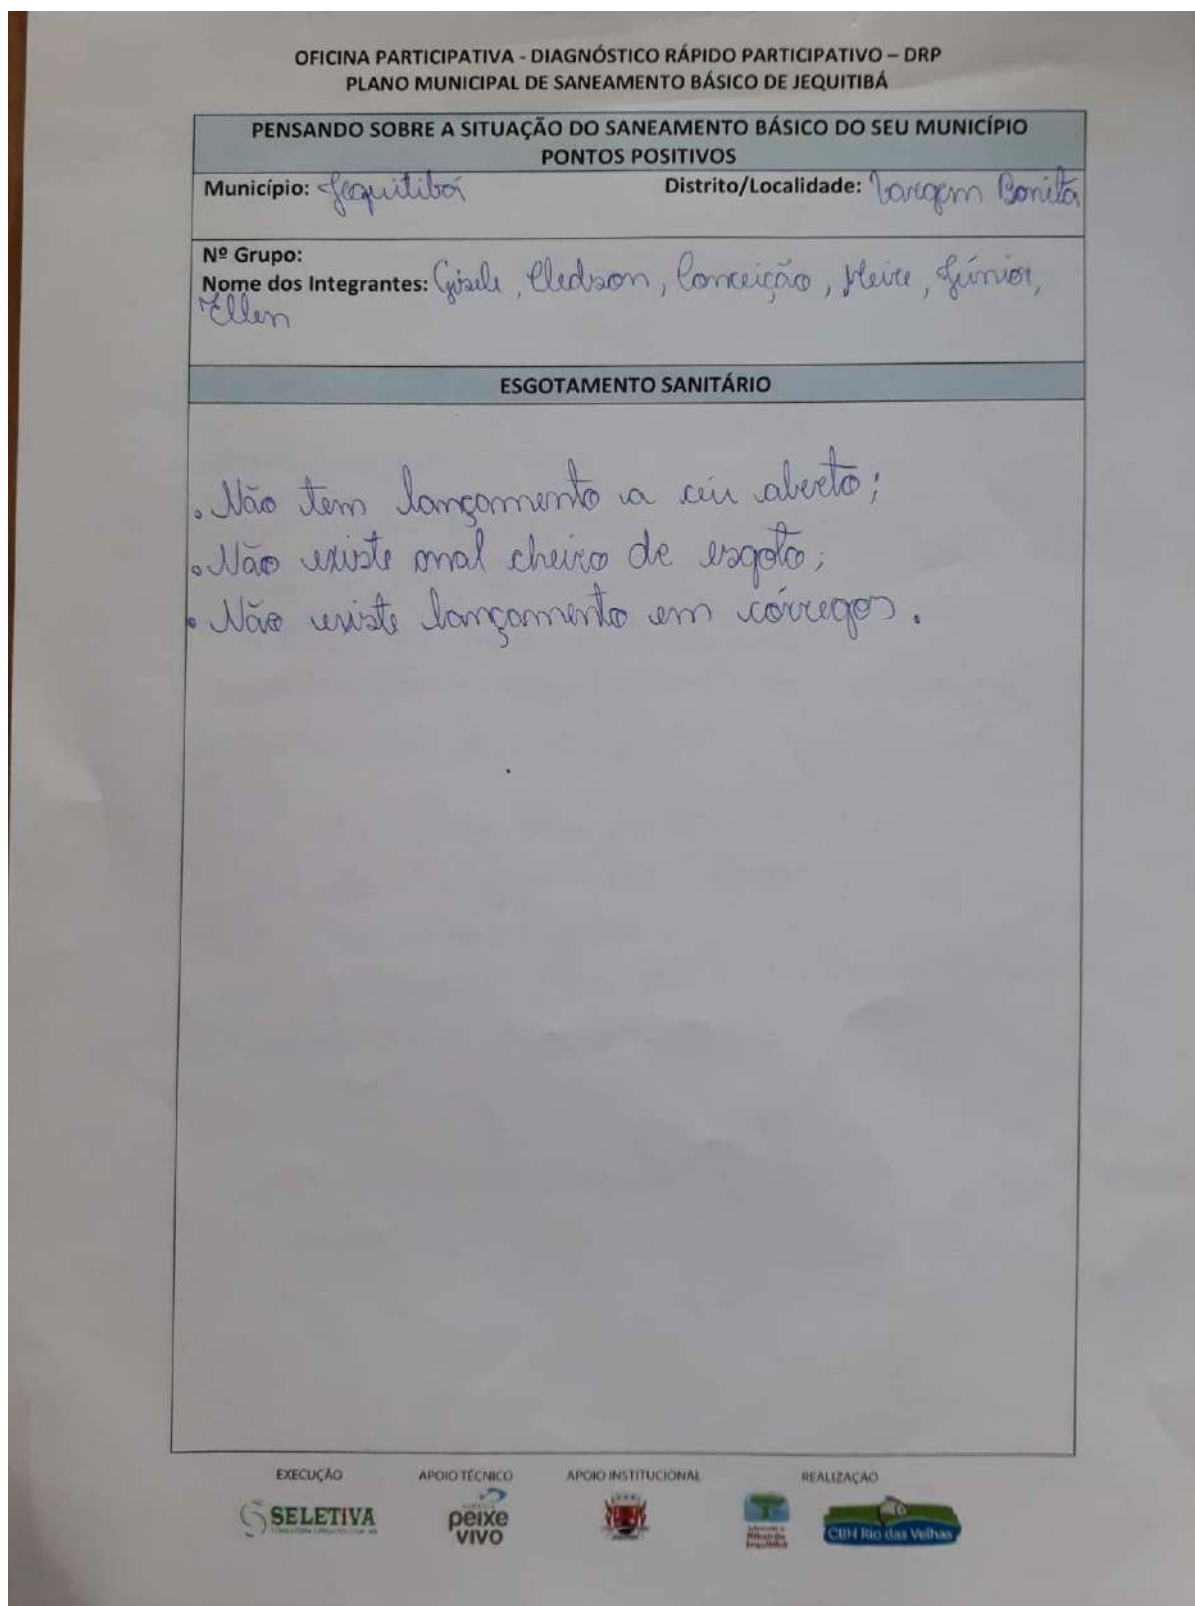 OFICINA PARTICIPATIVA - DIAGNÓSTICO RÁPIDO PARTICIPATIVO – DRP
PLANO MUNICIPAL DE SANEAMENTO BÁSICO DE JEQUITIBÁ
PENSANDO SOBRE A SITUAÇÃO DO SANEAMENTO BÁSICO DO SEU MUNICÍPIO
PONTOS POSITIVOS
Município: Jequitibá Distrito/Localidade: Vargem Bonita
Nº Grupo:
Nome dos Integrantes: Gisele, Cledson, Conceição, Meire, Júnior,
Ellen
ESGOTAMENTO SANITÁRIO
. Não tem lançamento a céu aberto;
. Não existe mal cheiro de esgoto;
. Não existe lançamento em córregos.
EXECUÇÃO APOIO TÉCNICO APOIO INSTITUCIONAL REALIZAÇÃO
SELETIVA
peixe
vivo
CBH Rio das Velhas